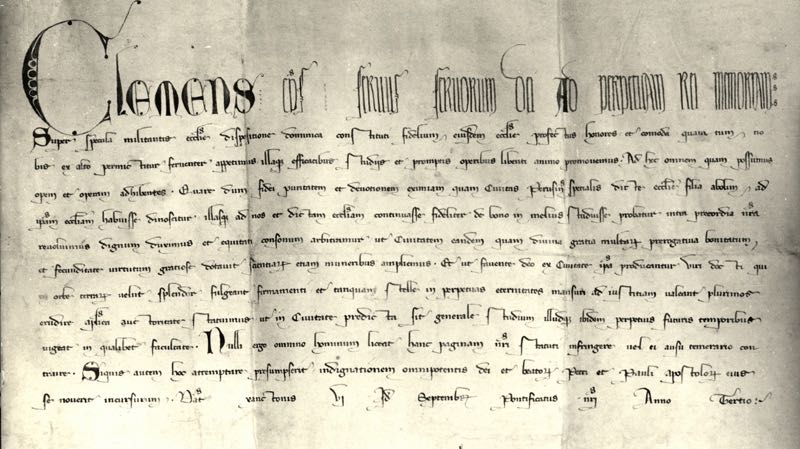 Clemens eps servus servorum dei Ad perpetuam rei memoriam
Super specula militantis ecclie dispositione dominica constituti fidelium, eiusdem ecclie profectus honores et comoda quantum, no
bis ex alto permittitur ferventer appetimus illaque efficacibus studiis et promptis operibus libenti animo promovemus. Ad hec omnem quam possumus
opem et operam adhibentes. Quare dum fidei puritatem et devotionem eximiam quam Civitas Perusin specialis dicte ecclie filia abolim, ad
ipam eccliam habuisse dinoscitur illasque ad nos et dictam eccliam continuasse fideliter de bono in melius studuisse probatur intra precordia nra
revolvimus dignum ducimus et equitati consonum arbitramur ut Civitatem eandem quam divina gratia multarum prerogativa bonitatum,
et fecunditate virtutum gratiose dotavit scientiarum etiam muneribus ampliemus. Et ut favente deo ex Civitate ipa producantur viri docti qui
in orbe terrarum velut splendor fulgeant firmamenti et tanquam stelle in perpetuas eternitates mansuri ad iustitiam valeant plurimos
erudire aplica auctoritate statuimus ut in Civitate predicta sit generale studium illudque ibidem perpetuis futuris temporibus
vigeat in qualibet facultate. Nulli ergo omnino hominum liceat hanc paginam nri statuti infringere vel ei ausu temerario con
traire. Siquis autem hoc attemptare presumpserit indignationem omnipotentis dei et beatorum Petri et Pauli apostolorum eius
se noverit incursurum. Dat xanctonis VI Id Septembr Pontificatus nri Anno Tertio